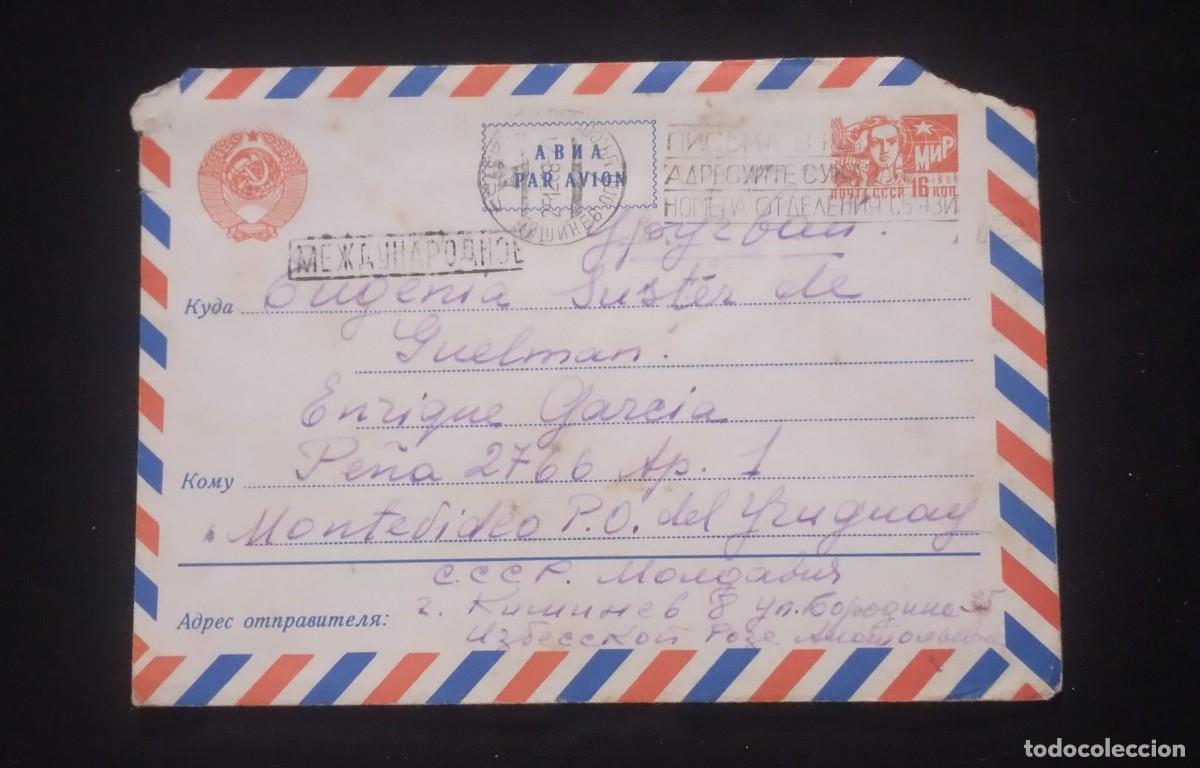 АВИА
PAR AVION
МИР
ПОЧТА СССР 16 КОП
ПИСЬМА В
АДРЕСУЙТЕ С УКАЗ
НОМЕРА ОТДЕЛЕНИЯ СВЯЗИ
МЕЖДУНАРОДНОЕ
Уругвай.
Куда Eugenia Suster de
Guelman.
Enrique Garcia
Кому Peña 2766 Ap. 1
Montevideo P.O. del Yruguay
СССР. Молдавия
Адрес отправителя: г. Кишинев 8 ул. Бородина
Избесской Розе
todocoleccion